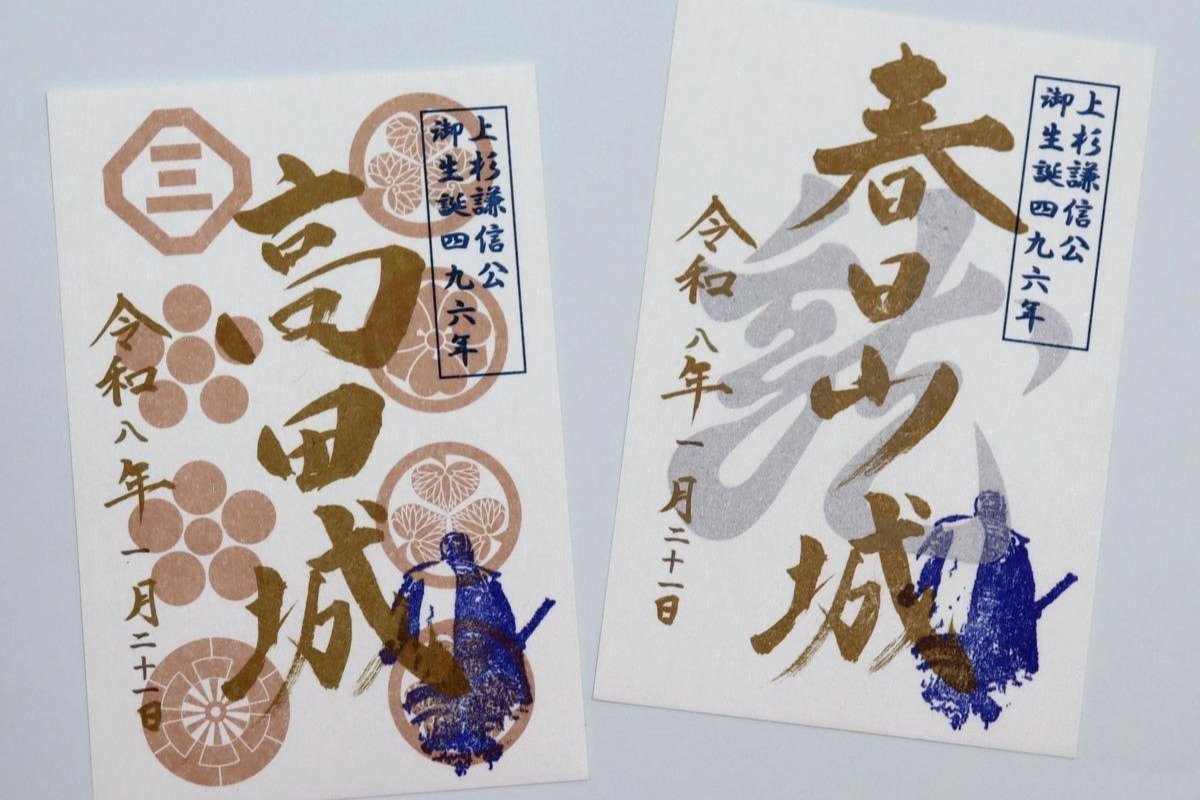 高田城
上杉謙信公
御生誕四九六年
令和八年一月二十一日
三
春日山城
上杉謙信公
御生誕四九六年
令和八年一月二十一日